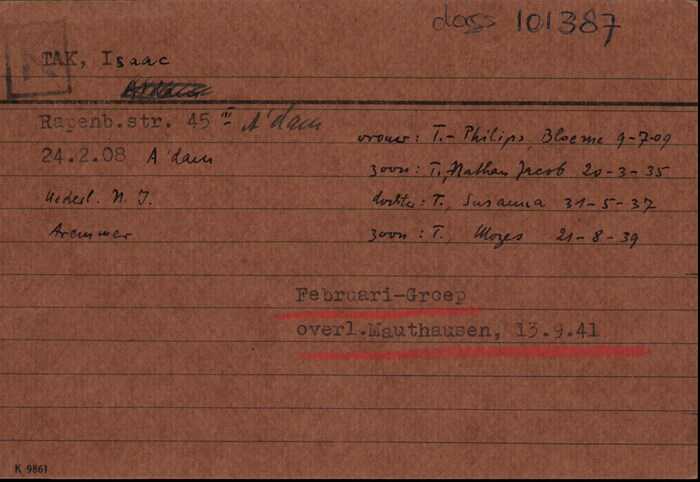 doss 101387
TAK, Isaac
Rapenb.str. 45 III A'dam
vrouw: T.-Philips, Bloeme 9-7-09
24.2.08 A'dam
zoon: T., Nathan Jacob 20-3-35
Nederl. N.I.
dochter: T., Susanna 31-5-37
zoon: T., Mozes 21-8-39
Februari-Groep
overl.Mauthausen, 13.9.41
K 9861